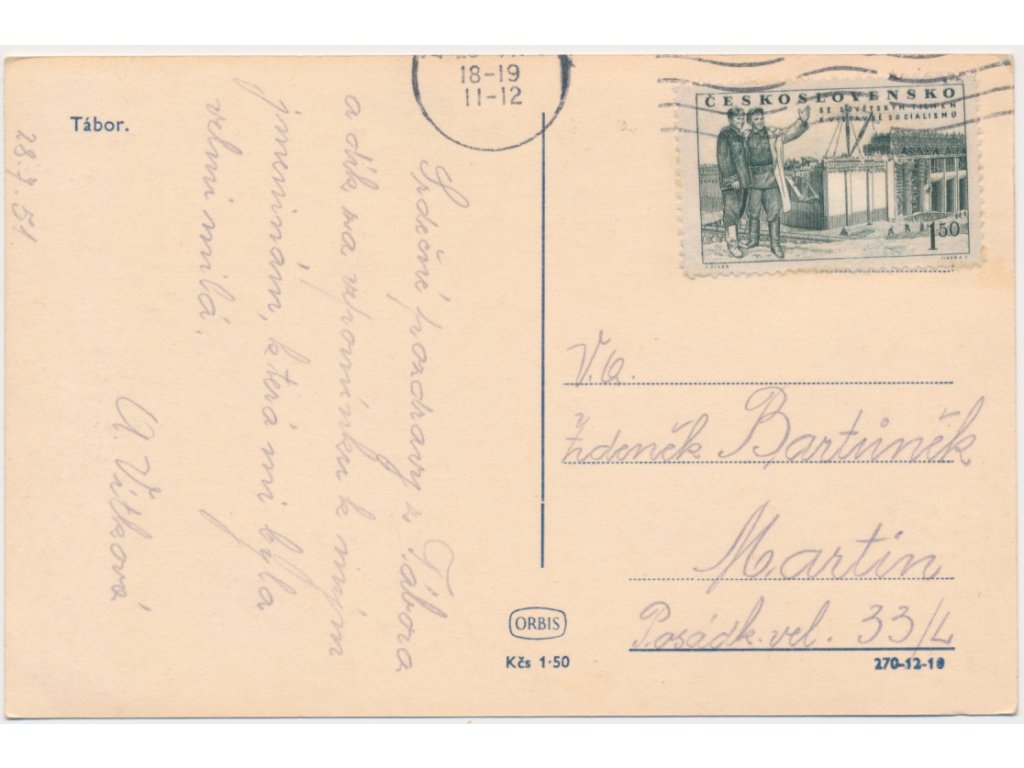 Tábor.
28.7.51
Srdečné pozdravy z Tábora
a dík za vzpomínku k mým
jmeninám, která mi byla
velmi milá.
A. Vítková
18-19
11-12
ČESKOSLOVENSKO
SE SOVĚTSKÝM FILMEM
K VÝSTAVBĚ SOCIALISMU
1 50
V.a.
Zdeněk Bartůněk
Martin
Posádk. vel. 33/L
ORBIS
Kčs 1·50
270-12-10